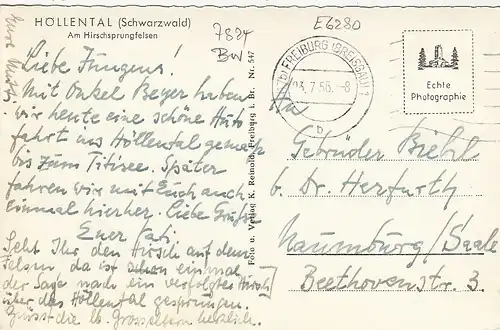 HÖLLENTAL (Schwarzwald)
Am Hirschsprungfelsen
7824
BW
E6280
FREIBURG (BREISGAU)
23.7.56.-8
b
Echte
Photographie
Eure Mutti
Liebe Jungens!
Mit Onkel Beyer haben
wir heute eine schöne Auto
fahrt ins Höllental gemacht
bis zum Titisee. Später
fahren wir mit Euch auch
einmal hierher. Liebe Grüße
Euer Vati
Seht Ihr den Hirsch auf dem
Felsen, da ist schon einmal
der Sage nach ein verfolgter Hirsch
über das Höllental gesprungen.
Grüsst die lb. Grosseltern herzlich.
Foto u. Verlag K. Reinold, Freiburg i. Br. Nr. 547
An
Gebrüder Biehl
b. Dr. Herfurth
Naumburg/Saale
Beethovenstr. 3.